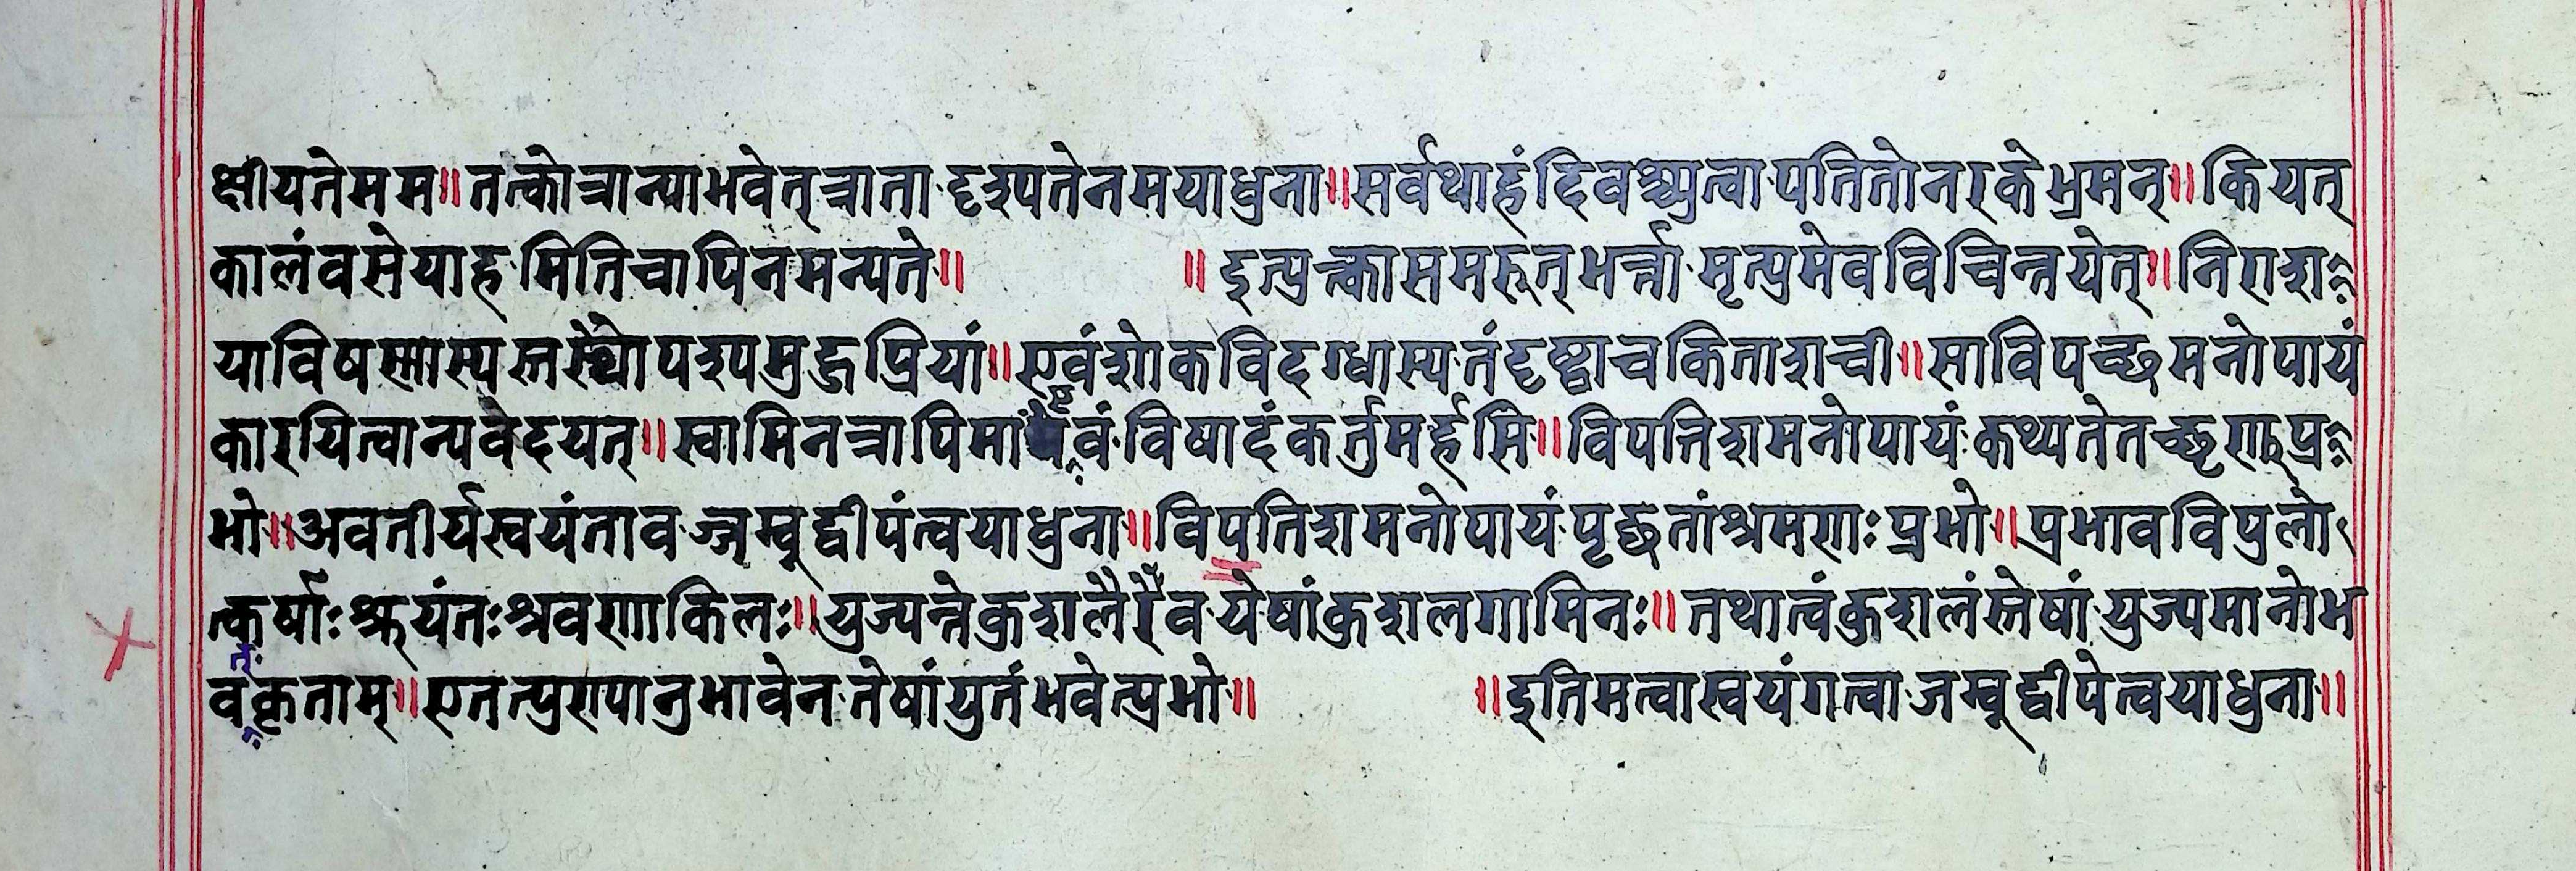 क्षीयतेमम॥तत्कोत्रान्याभवेत्त्राता दृश्पतेनमयाधुना॥सर्वथाहंदिवश्च्युत्वा पतितोनरकेभ्रमन्॥कियत्
कालंवसेयाह मितिचापिनमन्यते॥ ॥इत्युक्त्कासमरुत्भर्त्ता मृत्युमेवविचिन्तयेत्॥निराशा
याविषस्मास्य स्तस्थोपश्पमुद्गप्रियां॥एवंशोकविदग्धास्य तंदृष्ट्वाचकिताशची॥साविपच्छमनोपायं
कारयित्वान्यवेदयत्॥स्वामिनत्रापिमांएवं विषादंकर्तुमर्हसि॥विपत्तिशमनोपायं कथ्यतेतच्छृणुप्र
भो॥अवतीर्यस्वयंताव ज्जम्बूद्वीपंत्वयाधुना॥विपतिशमनोपायं पृछतांश्रमणाः प्रभो॥प्रभावविपुलो
त्कर्षाः श्रूयंतः श्रवणाकिलः॥युज्यन्तेकुशलैरेव येषांकुशलगामिनः॥तथात्वंकुशलंस्तेषां युज्यमानोभ
वत्कृताम्॥एतत्पुण्यानुभावेन तेषांयुतंभवेत्प्रभो॥ ॥इतिमत्वास्वयंगत्वा जम्बूद्वीपेत्वयाधुना॥